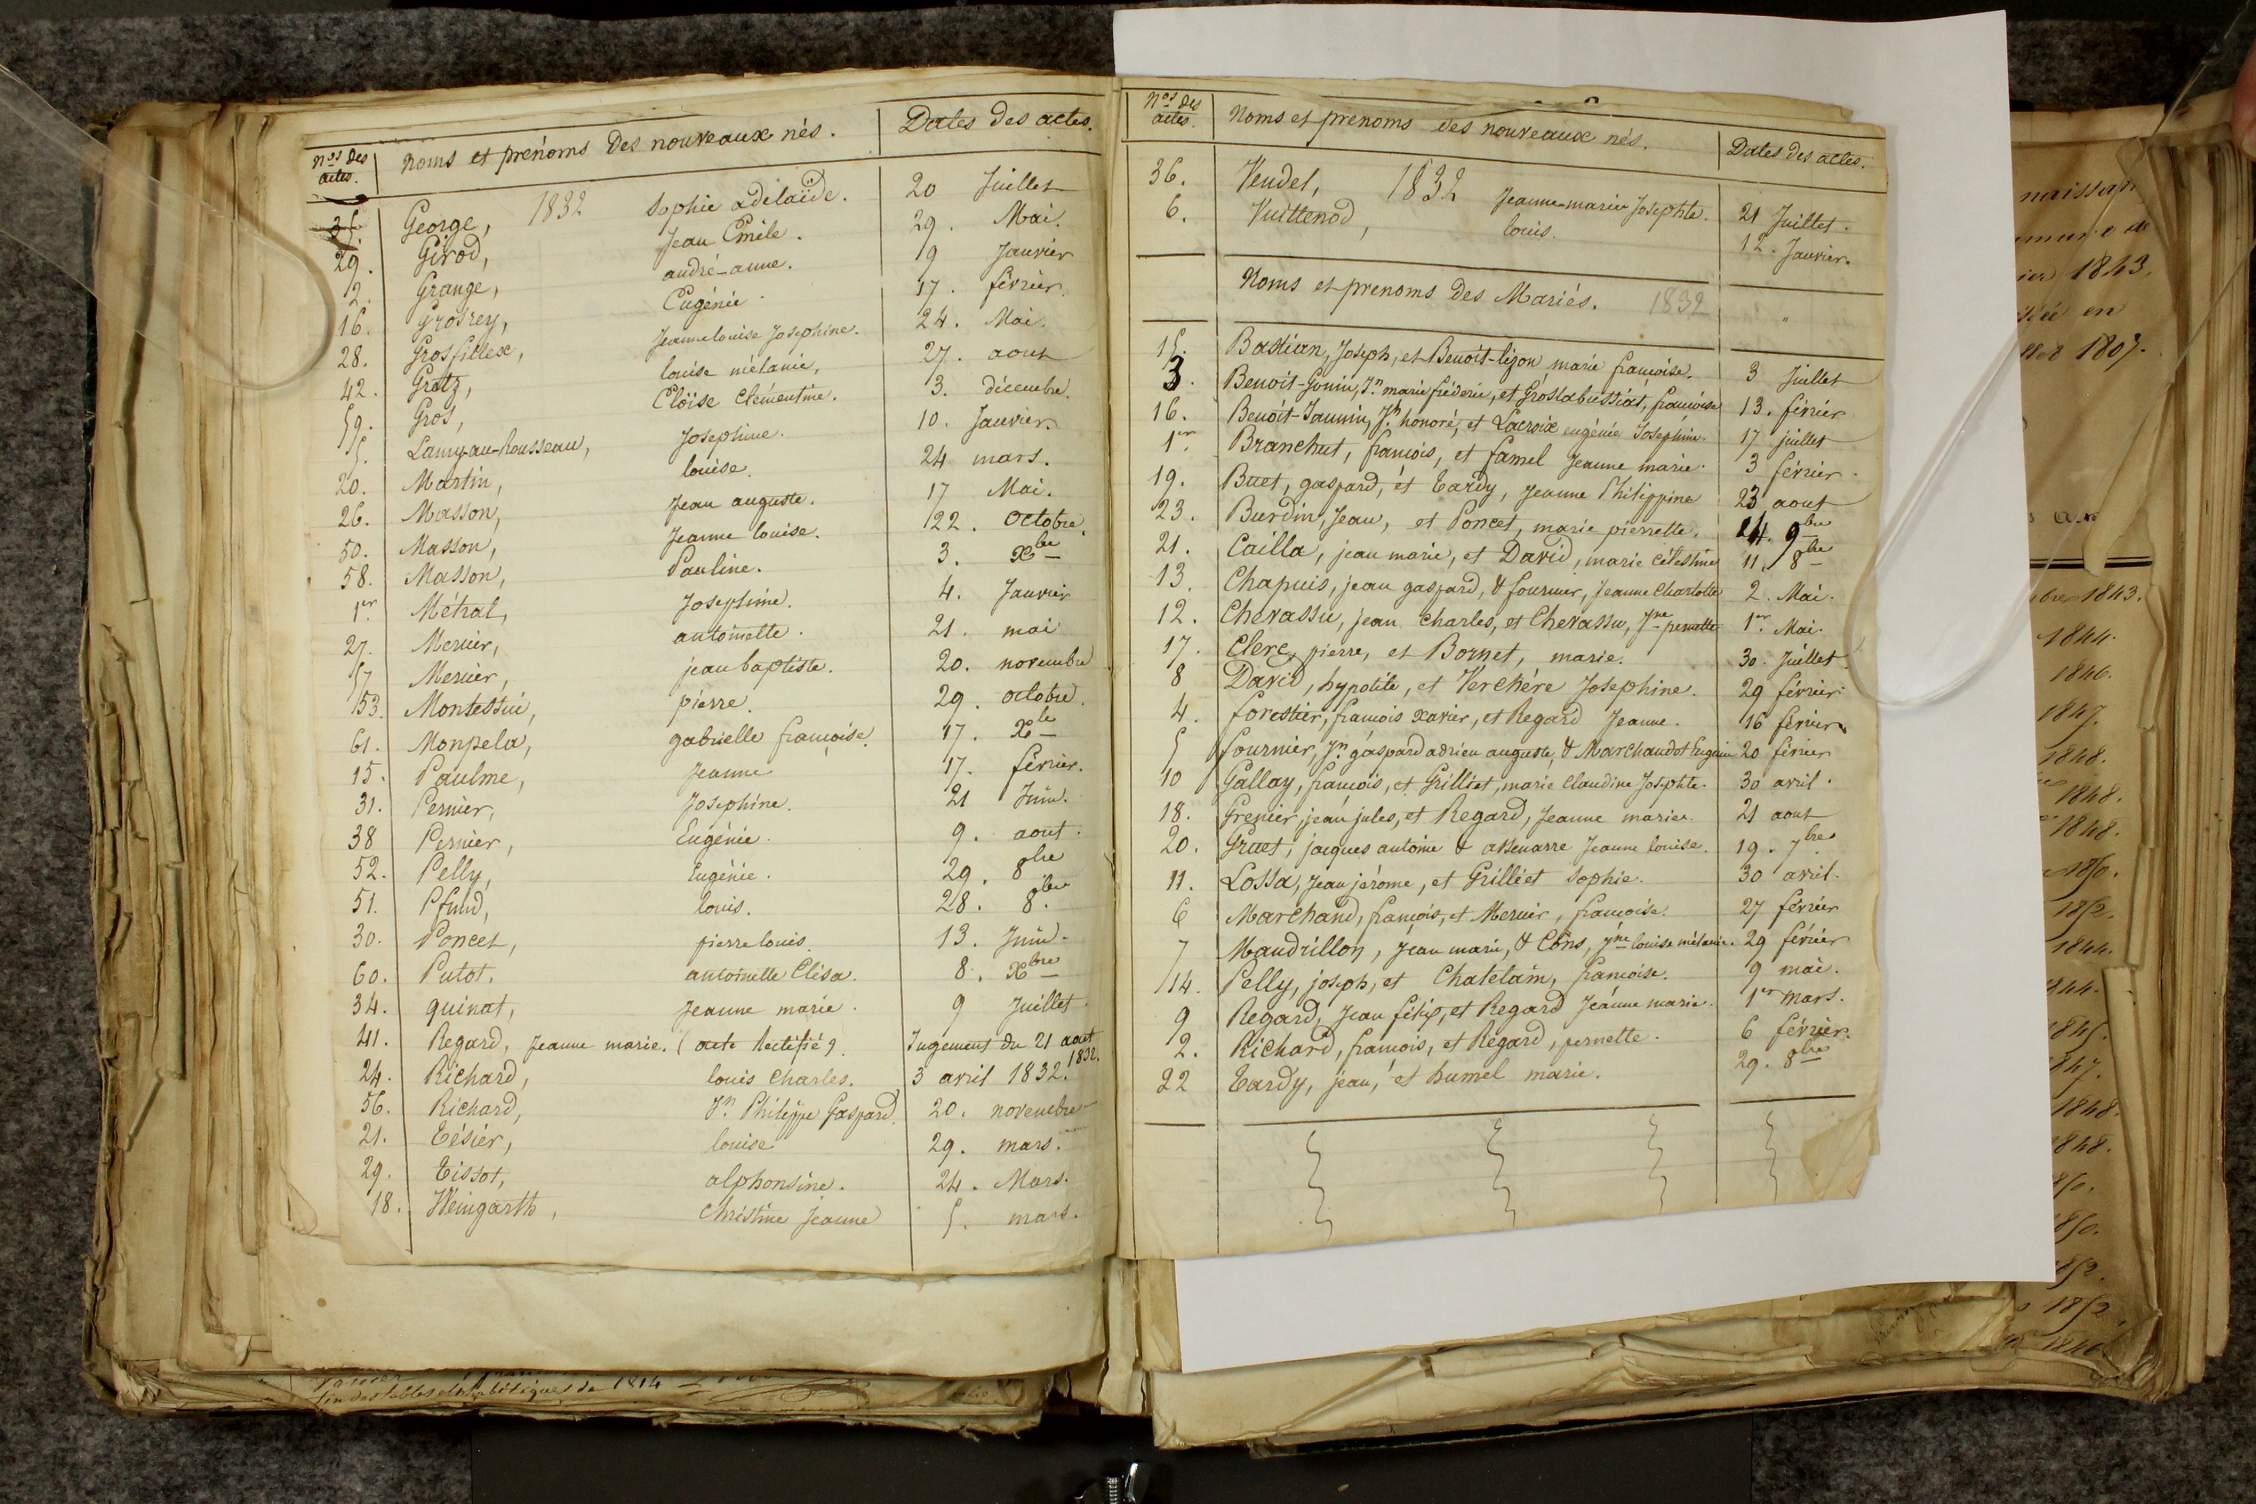 Nos des actes. Noms et prénoms des nouveaux nés. Dates des actes.
1832
35. George, Sophie adélaïde. 20 Juillet
29. Girod, Jean Emile. 29. Mai.
2. Grange, andré-anne. 19 Janvier
16. Grosrey, Eugénie. 17. février.
28. Grosfillex, Jeanne louise Josephine. 24. Mai.
42. Gratz, louise mélanie, 27. aout
59. Gros, Eloïse Clémentine. 3. décembre.
5. Lamy-au-Rousseau, Josephine. 10. Janvier.
20. Martin, louise. 24 mars.
26. Masson, Jean auguste. 17 Mai.
50. Masson, Jeanne louise. 22. Octobre.
58. Masson, Pauline. 3. Xbre
1er Métral, Josephine. 4. Janvier
27. Mercier, antoinette. 21. mai
57 Mercier, jean baptiste. 20. novembre
53. Montessui, pierre. 29. octobre.
61. Monpela, gabrielle françoise. 17. Xbre
15. Paulme, Jeanne 17. février.
31. Pernier, Josephine. 21 Juin.
38 Pernier, Eugénie. 9. aout.
52. Pelly, Eugénie. 29. 8bre
51. Pfund, louis. 28. 8bre.
30. Poncet, pierre louis. 13. Juin.
60. Putot. antoinette Elisa. 8. Xbre
34. quinat, Jeanne marie. 9 Juillet.
41. Regard, Jeanne marie. (acte Rectifié) Jugement du 21 aout 1832.
24. Richard, louis Charles. 3 avril 1832.
56. Richard, Jn Philippe Gaspard. 20. novembre
21. Tésier, louise 29. mars.
29. Tissot, alphonsine. 24. Mars.
18. Weingarth, Christine Jeanne 5. mars.
fin des tables alphabétiques de 1814
Nos des actes. Noms et prenoms des nouveaux nés. Dates des actes.
1832
36. Vendel, Jeanne-marie Josephte. 21 Juillet.
6. Vuittenod, louis. 12. Janvier.
Noms et prenoms des Mariés. 1832 "
15. Bastian, Joseph, et Benoit-lizon, marie françoise. 3 Juillet
3. Benoit-Gonin, Jn marie fréderic, et Groslabussiat, françoise 13. février
16. Benoit-Jannin, Jh honoré, et Lacroix eugénie Josephine. 17 juillet
1er Branchut, françois, et famel Jeanne marie. 3 février.
19. Buet, gaspard, et Tardy, Jeanne Philippine 23 aout
23. Burdin, Jean, et Poncet, marie pierrette. 24. 9bre
21. Cailla, jean marie, et David, marie célestine 11. 8bre
13. Chapuis, jean gaspard, & fournier, Jeanne Charlotte 2. Mai.
12. Chevassu, jean Charles, et Chevassu, Jne pernette 1er. Mai.
17. Clerc, pierre, et Bornet, marie. 30. Juillet.
8 David, hypolite, et Verchére Josephine. 29 février.
4. forestier, françois xavier, et Regard Jeanne. 16 février
5 fournier, Jn gaspard adrien auguste, & Marchandot Eugénie 20 février
10 Gallay, françois, et Grilliet, marie Claudine Josephte. 30 avril.
18. Grenier jean jules, et Regard, Jeanne marie. 21 aout
20. Gruet, jacques antoine & assenarre Jeanne louise. 19. 7bre
11. Lossa, Jean jérome, et Grilliet Sophie. 30 avril.
6 Marchand, françois, et Mercier, françoise. 27 février
7 Mandrillon, Jean marie, & Cons, Jne louise mélanie. 29 février
14. Pelly, joseph, et Chatelain, françoise. 9 mai.
9 Regard, Jean félix, et Regard Jeanne marie. 1er mars.
2. Richard, françois, et Regard, pernette. 6 février.
22 Tardy, jean, et humel marie. 29. 8bre
1843.
en
1807.
1843.
1844.
1846.
1847.
1848.
1848.
1848.
1850.
1852.
1844.
1844.
1845.
1847.
1848.
1848.
1850.
1850.
1852.
1852.
1846